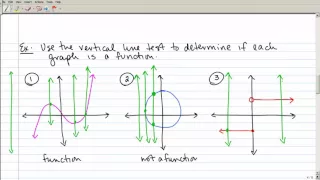 Ex: Use the vertical line test to determine if each
graph is a function.
1 2 3
function not a function